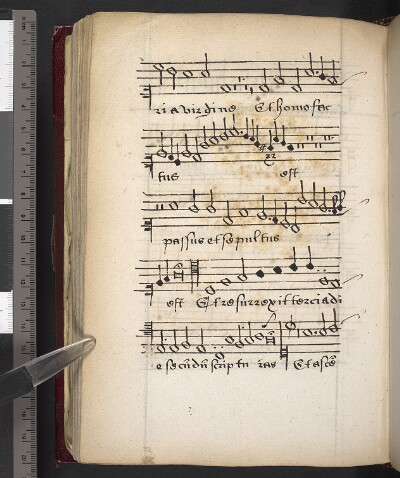 ri a virgine Et homo fac
tus est
passus et sepultus
est Et resurrexit tercia di
e secūdū scriptu ras Et ascē